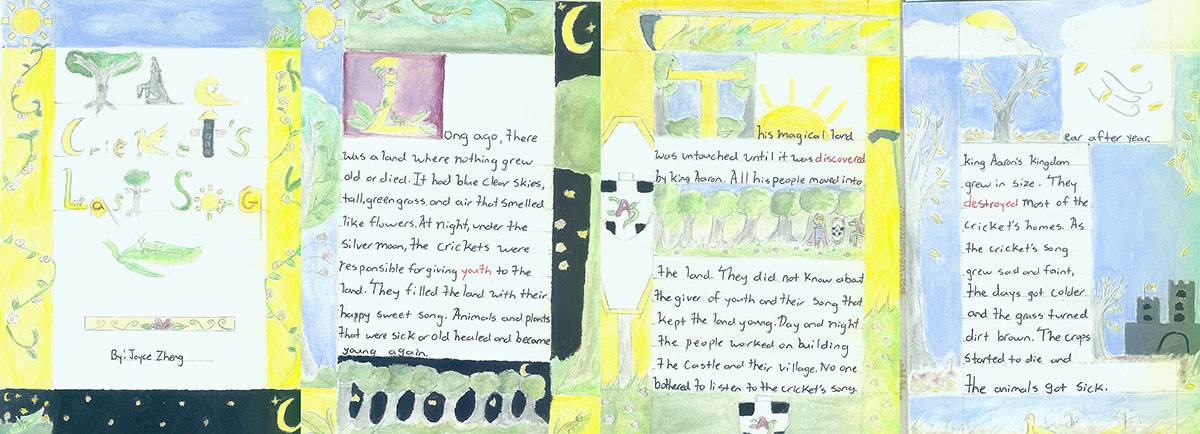 The
Cricket's
Last Song
By: Joyce Zheng
Long ago, there
was a land where nothing grew
old or died. It had blue clear skies,
tall, green grass and air that smelled
like flowers. At night, under the
silver moon, the crickets were
responsible for giving youth to the
land. They filled the land with their
happy sweet song. Animals and plants
that were sick or old healed and became
young again.
This magical land
was untouched until it was discovered
by King Aaron. All his people moved into
A
the land. They did not know about
the giver of youth and their song that
kept the land young. Day and night
the people worked on building
the Castle and their village. No one
bothered to listen to the cricket's song.
A
Year after year.
King Aaron's Kingdom
grew in size. They
destroyed most of the
cricket's homes. As
the cricket's song
grew sad and faint,
the days got colder
and the grass turned
dirt brown. The crops
started to die and
the animals got sick.